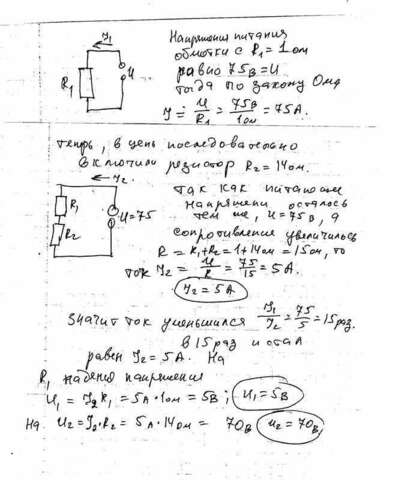 I₁
R₁
U
Напряжения питания
обмотки с R₁ = 1 ом
равно 75в = U
тогда по закону Ома
I = U/R₁ = 75в/1ом = 75А.
теперь, в цепь последовательно
включили резистор R₂ = 14ом.
I₂
R₁
R₂
U=75
так как питающее
напряжени осталось
тем же, U=75в, а
сопротивление увеличилось
R = R₁+R₂ = 1+14ом = 15ом, то
ток I₂ = U/R = 75/15 = 5А.
I₂ = 5А
значит ток уменьшился I₁/I₂ = 75/5 = 15 раз.
в 15 раз и стал
равен I₂ = 5А. На
R₁ падения напряжения
U₁ = I₂R₁ = 5А·1ом = 5в; U₁=5в
На U₂ = I₂·R₂ = 5А·14ом = 70в U₂ = 70в,